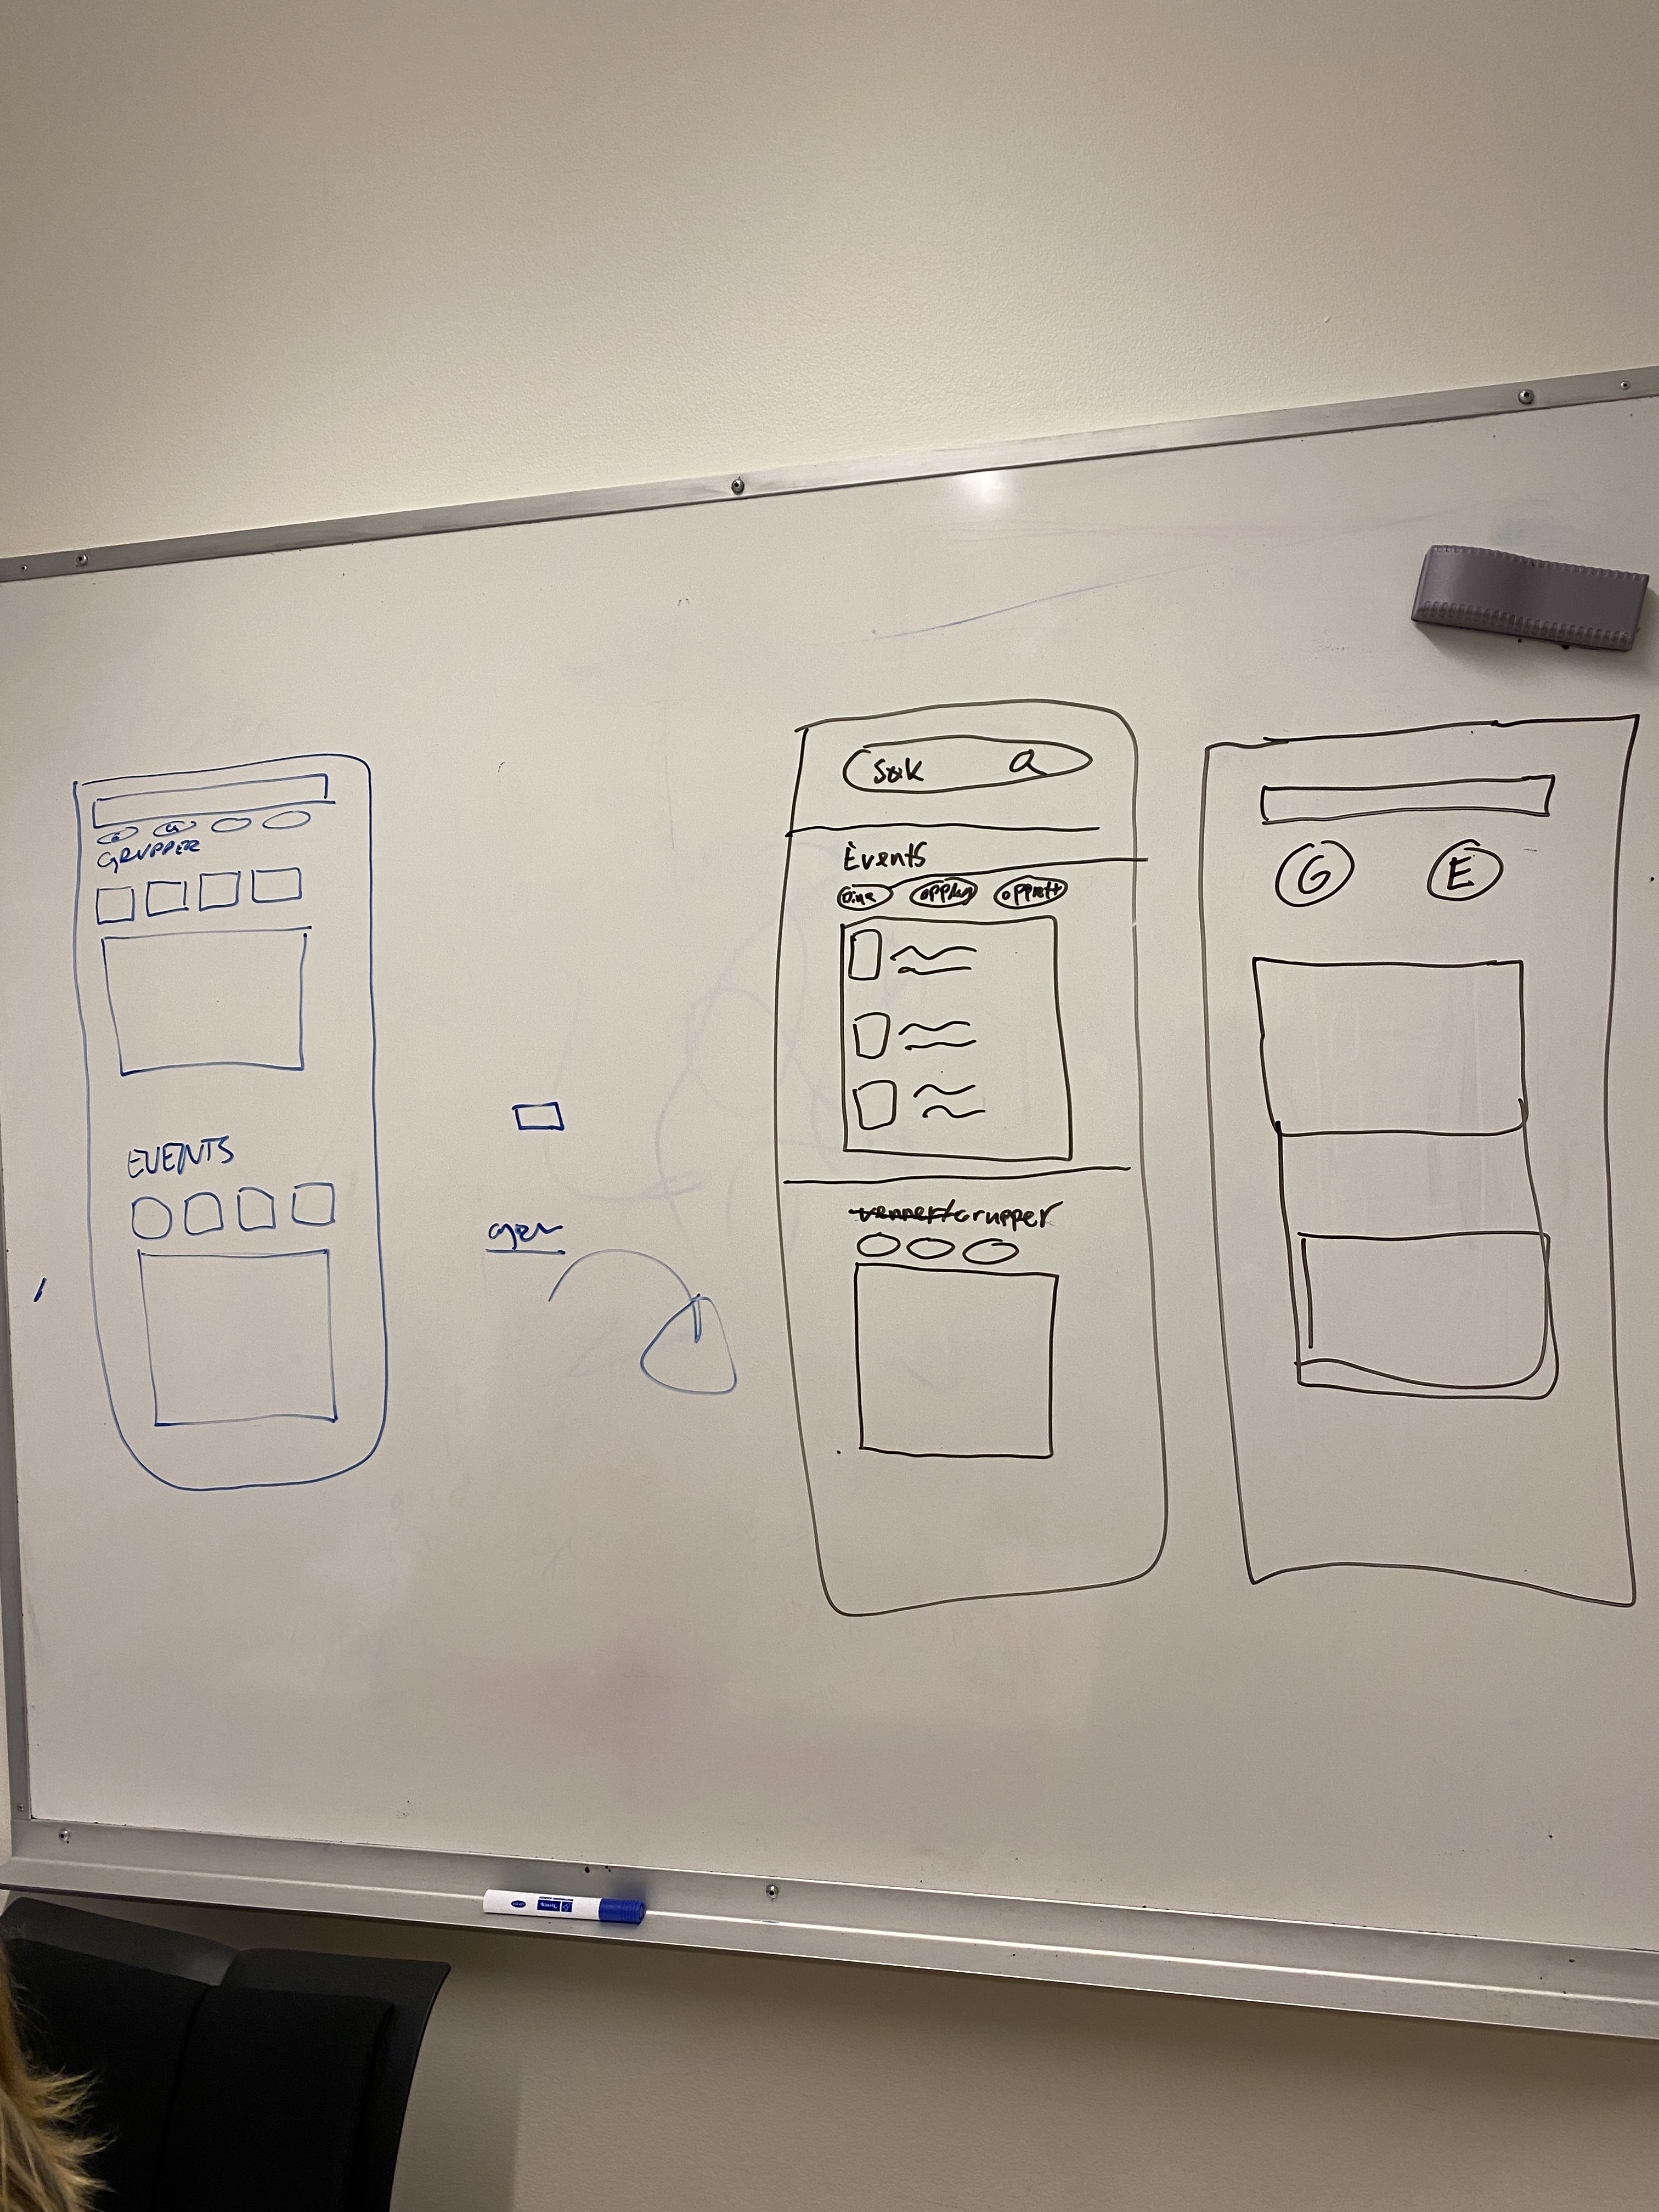 GRUPPER
EVENTS
Søk
Events
Dine opplag opprett
venner/Grupper
G E